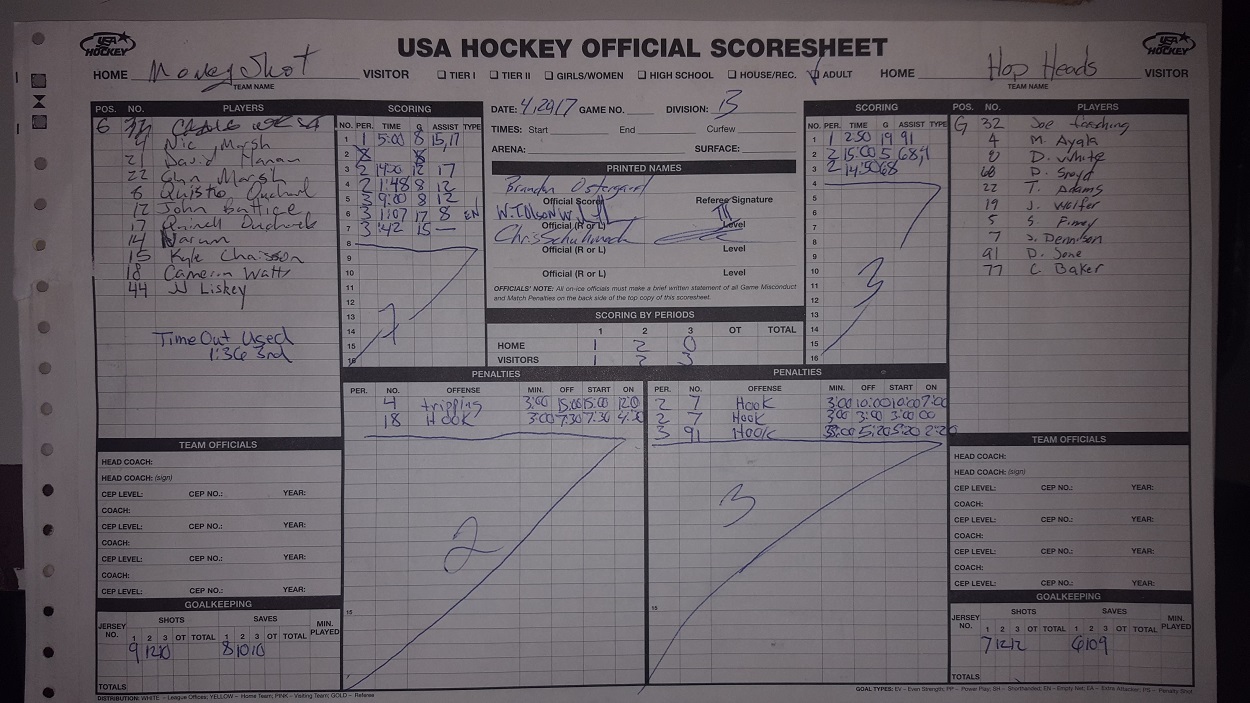 USA HOCKEY
USA HOCKEY OFFICIAL SCORESHEET
USA HOCKEY
HOME Money Shot VISITOR
TEAM NAME
TIER I TIER II GIRLS/WOMEN HIGH SCHOOL HOUSE/REC. ADULT
HOME Hop Heads VISITOR
TEAM NAME
POS. NO. PLAYERS
G
4 Nic Marsh
21 David
22 Marsh
6
12 John
17
14 Narum
15 Kyle Chaisson
18 Cameron Watts
44 JJ Liskey
Time Out Used
1:36 3rd
SCORING
NO. PER. TIME G ASSIST TYPE
1 1 5:00 8 15,17
2
3 2 14:50 12 17
4 2 1:48 8 12
5 3 9:00 8 12
6 3 1:07 17 8 EN
7 3 :42 15 —
8
9
10
11
12
13
14
15
16
7
DATE: 4/29/17 GAME NO. DIVISION: B
TIMES: Start End Curfew
ARENA: SURFACE:
PRINTED NAMES
Brandon Ostergard
Official Scorer Referee Signature
W.T. Olson
Official (R or L) Level
Chris
Official (R or L) Level
Official (R or L) Level
OFFICIALS' NOTE: All on-ice officials must make a brief written statement of all Game Misconduct
and Match Penalties on the back side of the top copy of this scoresheet.
SCORING BY PERIODS
1 2 3 OT TOTAL
HOME 1 2 0
VISITORS 1 2 3
SCORING
NO. PER. TIME G ASSIST TYPE
1 1 2:50 19 91
2 2 15:00 5 68,7
3 2 14:50 68
4
5
6
7
8
9
10
11
12
13
14
15
16
3
POS. NO. PLAYERS
G 32 Joe
4 M. Ayala
8 D. White
68 D.
22 T. Adams
19 J. Welfer
5 S.
7 J. Dennison
91 D. Sone
77 C. Baker
PENALTIES
PER. NO. OFFENSE MIN. OFF START ON
4 tripping 3:00 15:00 15:00 12:0
18 Hook 3:00 7:30 7:30 4:30
2
15
PENALTIES
PER. NO. OFFENSE MIN. OFF START ON
2 7 Hook 3:00 10:00 10:00 7:00
2 7 Hook 3:00 3:00 3:00 00
3 91 Hook 3:00 5:20 5:20 2:20
3
15
TEAM OFFICIALS
HEAD COACH:
HEAD COACH: (sign)
CEP LEVEL: CEP NO.: YEAR:
COACH:
CEP LEVEL: CEP NO.: YEAR:
COACH:
CEP LEVEL: CEP NO.: YEAR:
COACH:
CEP LEVEL: CEP NO.: YEAR:
GOALKEEPING
JERSEY NO. SHOTS SAVES MIN. PLAYED
1 2 3 OT TOTAL 1 2 3 OT TOTAL
9 12 10 8 10 10
TOTALS
TEAM OFFICIALS
HEAD COACH:
HEAD COACH: (sign)
CEP LEVEL: CEP NO.: YEAR:
COACH:
CEP LEVEL: CEP NO.: YEAR:
COACH:
CEP LEVEL: CEP NO.: YEAR:
COACH:
CEP LEVEL: CEP NO.: YEAR:
GOALKEEPING
JERSEY NO. SHOTS SAVES MIN. PLAYED
1 2 3 OT TOTAL 1 2 3 OT TOTAL
7 12 12 6 10 9
TOTALS
DISTRIBUTION: WHITE – League Offices; YELLOW – Home Team; PINK – Visiting Team; GOLD – Referee
GOAL TYPES: EV – Even Strength; PP – Power Play; SH – Shorthanded; EN – Empty Net; EA – Extra Attacker; PS – Penalty Shot